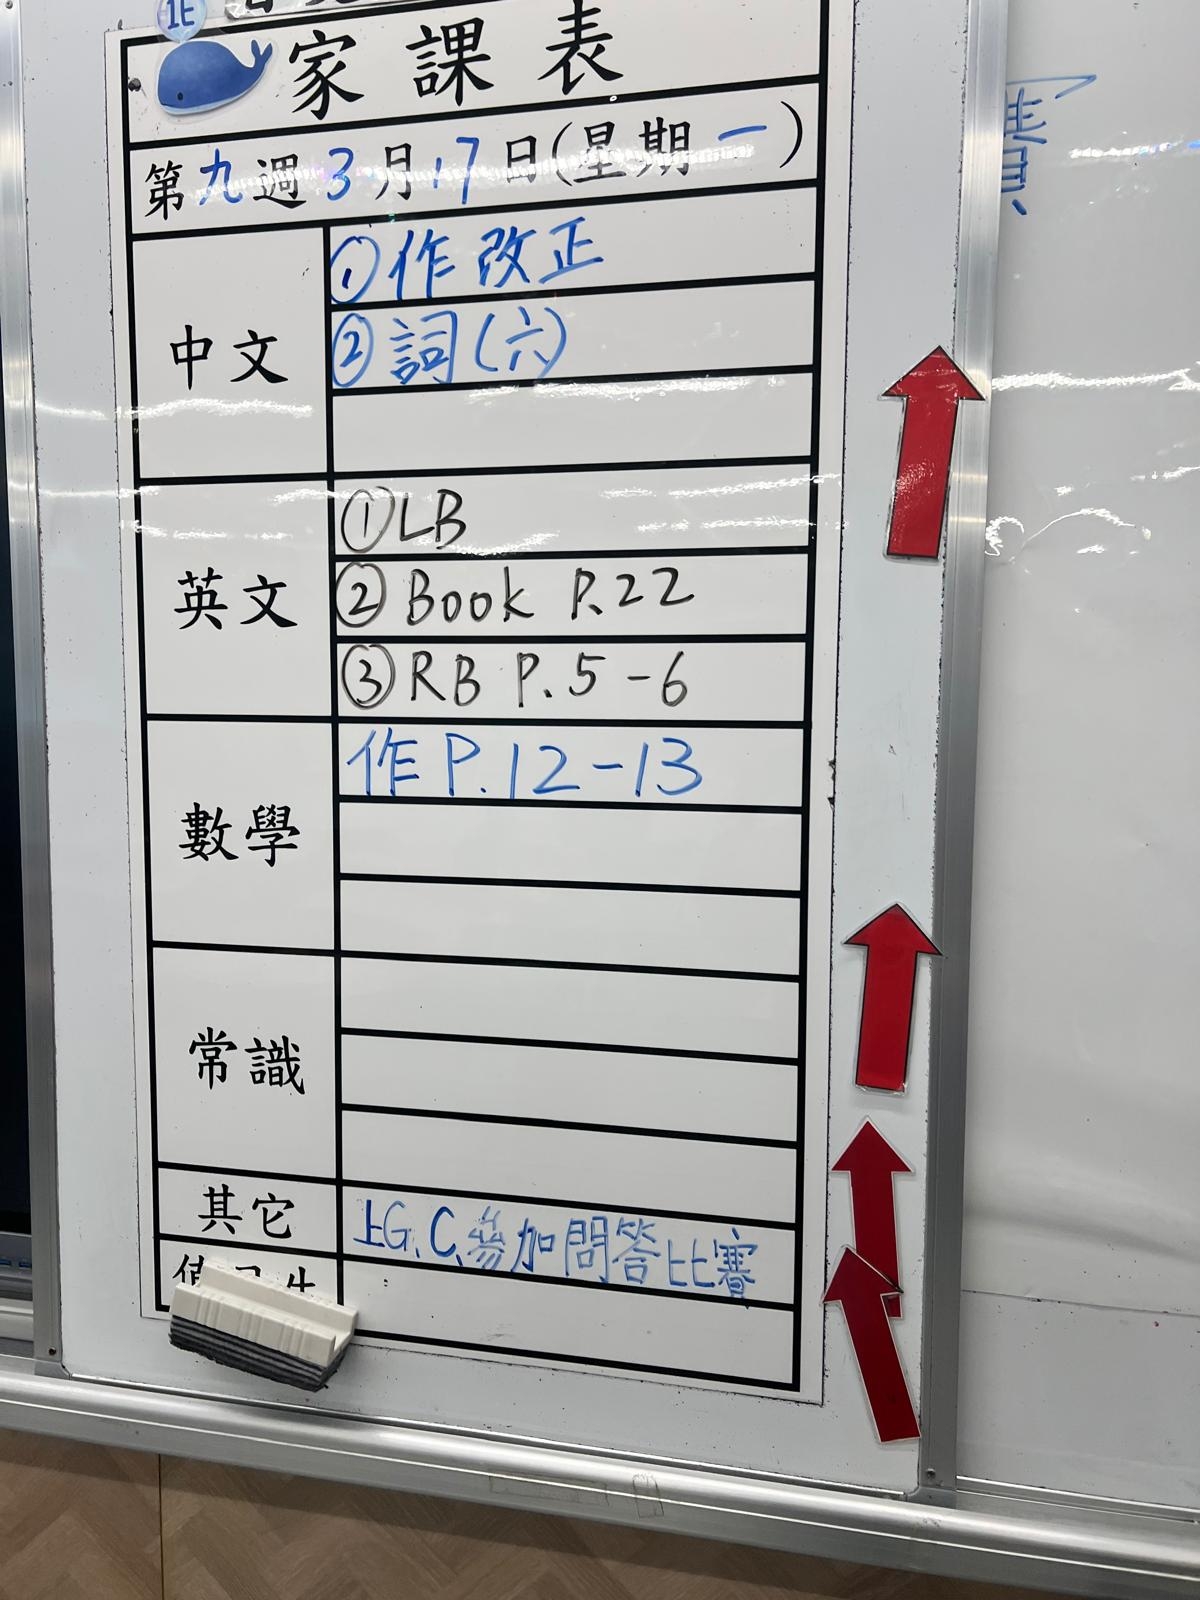 1E
家課表
第九週3月17日(星期一)
中文
①作改正
②詞(六)
英文
①LB
②Book P.22
③RB P.5-6
數學
作P.12-13
常識
其它
上G.C.參加問答比賽